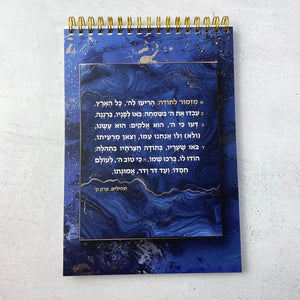 א מִזְמוֹר לְתוֹדָה: הָרִיעוּ לַה', כָּל הָאָרֶץ.
ב עִבְדוּ אֶת ה' בְּשִׂמְחָה; בֹּאוּ לְפָנָיו, בִּרְנָנָה.
ג דְּעוּ כִּי ה', הוּא אֱלֹקִים: הוּא עָשָׂנוּ,
(ולא) וְלוֹ אֲנַחְנוּ עַמּוֹ, וְצֹאן מַרְעִיתוֹ.
ד בֹּאוּ שְׁעָרָיו, בְּתוֹדָה חֲצֵרֹתָיו בִּתְהִלָּה;
הוֹדוּ לוֹ, בָּרְכוּ שְׁמוֹ. ה כִּי טוֹב ה', לְעוֹלָם
חַסְדּוֹ; וְעַד דֹּר וָדֹר, אֱמוּנָתוֹ.
תהילים, פרק ק'